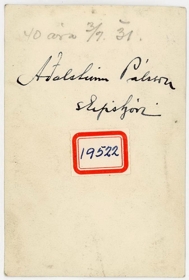 40 ára 3/7. 31.
Aðalsteinn Pálsson
skipstjóri
19522